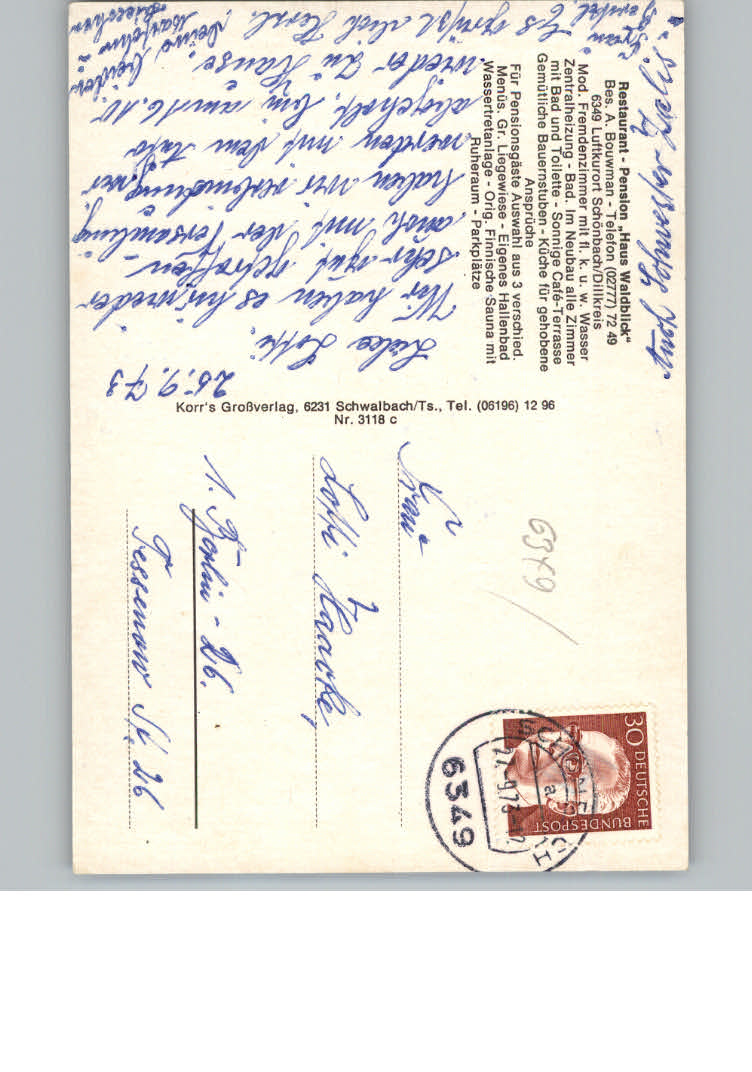 Restaurant - Pension „Haus Waldblick“
Bes. A. Bouwman - Telefon (02777) 72 49
6349 Luftkurort Schönbach/Dillkreis
Mod. Fremdenzimmer mit fl. k. u. w. Wasser
Zentralheizung - Bad. Im Neubau alle Zimmer
mit Bad und Toilette - Sonnige Café-Terrasse
Gemütliche Bauernstuben - Küche für gehobene
Ansprüche
Für Pensionsgäste Auswahl aus 3 verschied.
Menüs. Gr. Liegewiese - Eigenes Hallenbad
Wassertretanlage - Orig. Finnische Sauna mit
Ruheraum - Parkplätze
Korr's Großverlag, 6231 Schwalbach/Ts., Tel. (06196) 12 96
Nr. 3118 c
25.9.73
Liebe Lotti.
Wir haben es hir wieder
sehr gut getroffen -
auch mit der Versamlung
haben wir verbindung, wir
werden mit dem Auto
abgeholt. Bin am 16.10.
wieder zu Hause.
Es grüßt dich Herzl.
Deine beiden
Frau
auch Schwester
Frau
Lotti Haacke,
1. Berlin - 26.
Tessenow Str. 26
6349
30 DEUTSCHE
BUNDESPOST
SCHÖNBACH
a
27.-9.73-12
6349